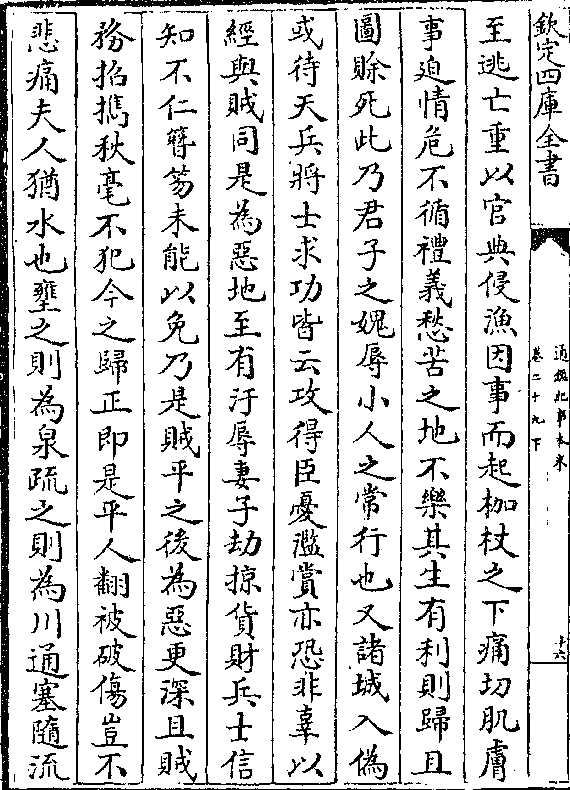 欽定四庫全書
通鑑紀事本末
卷二十九下
十六
至逃亡重以官典侵漁因事而起枷杖之下痛切肌膚
事迫情危不循禮義愁苦之地不樂其生有利則歸且
圖賒死此乃君子之媿辱小人之常行也又諸城入偽
或待天兵將士求功皆云攻得臣憂濫賞亦恐非辜以
經與賊同是為惡地至有汙辱妻子劫掠貨財兵士信
知不仁簪笏未能以免乃是賊平之後為惡更深且賊
務招攜秋毫不犯今之歸正即是平人翻被破傷豈不
悲痛夫人猶水也壅之則為泉疏之則為川通塞隨流